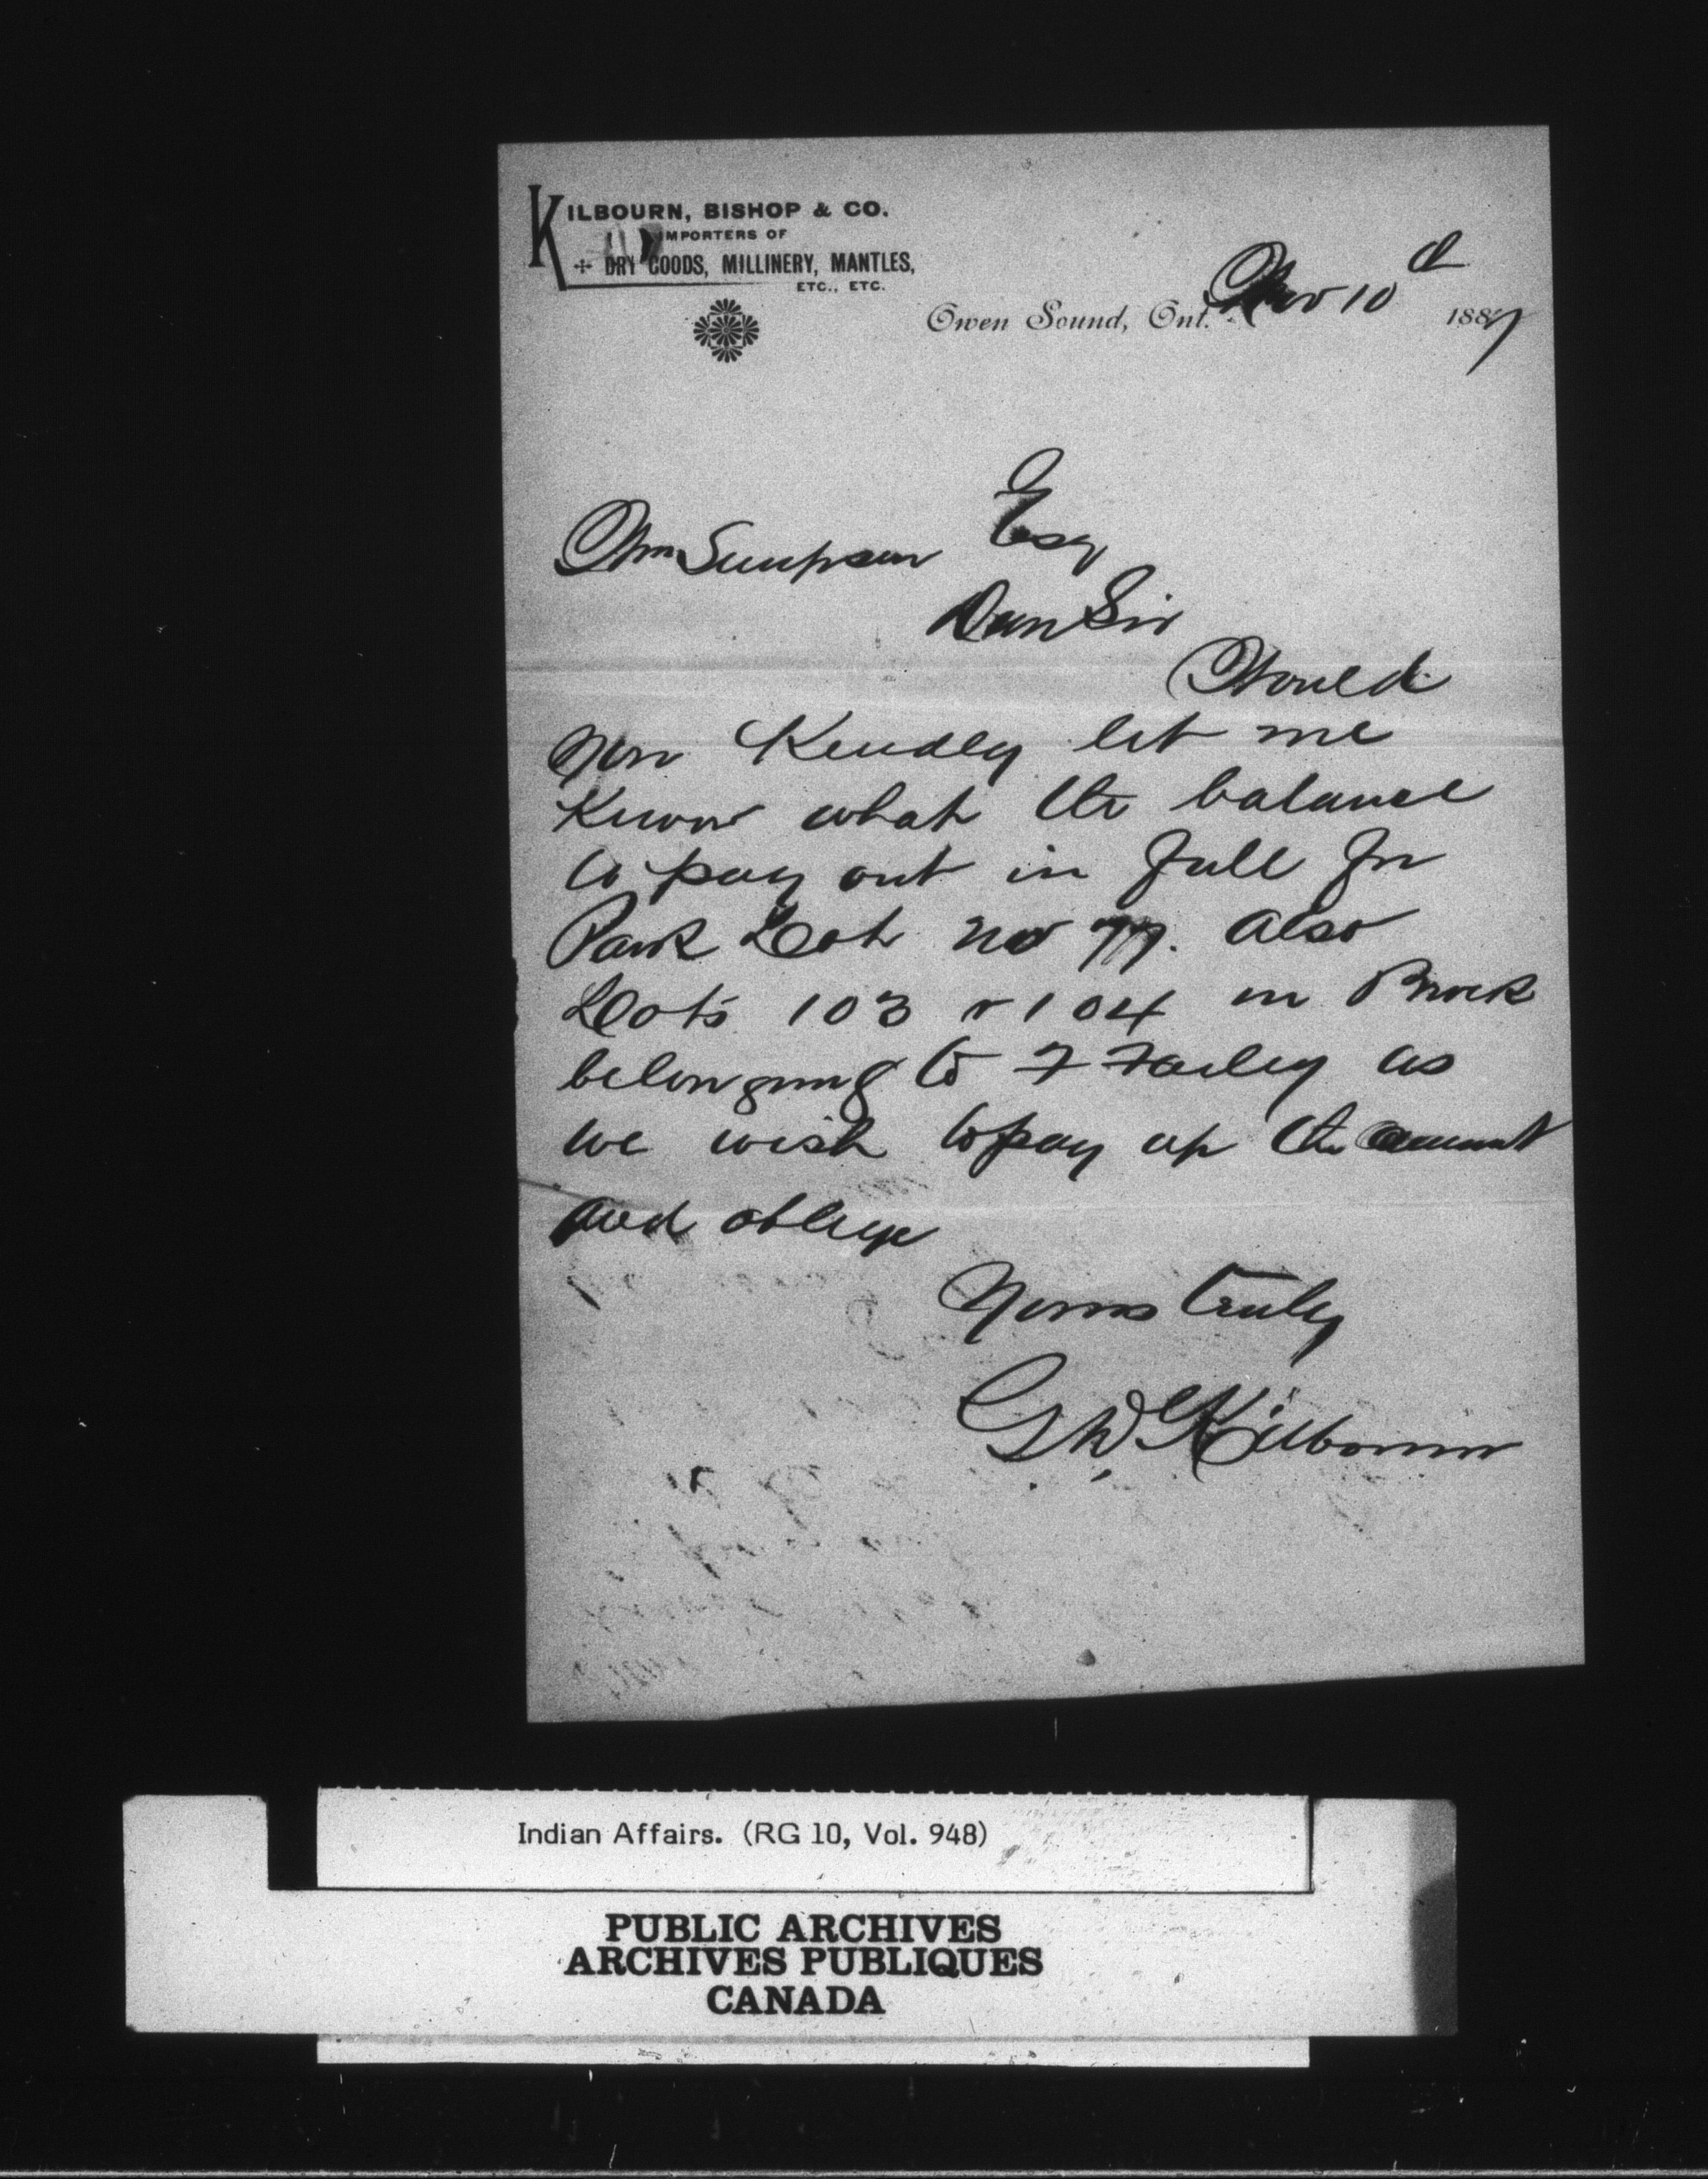 KILBOURN, BISHOP & CO.
IMPORTERS OF
DRY GOODS, MILLINERY, MANTLES,
ETC., ETC.
Owen Sound, Ont. Nov 10th 1887
Wm Simpson Esq
Dear Sir
Would
you Kindly let me
Know what the balance
to pay out in full for
Park Lot no 77. also
Lots 103 & 104 in Brook
belonging to as
we wish to pay up the amount
and oblige
Yours truly
G W Kilbourn
Indian Affairs. (RG 10, Vol. 948)
PUBLIC ARCHIVES
ARCHIVES PUBLIQUES
CANADA